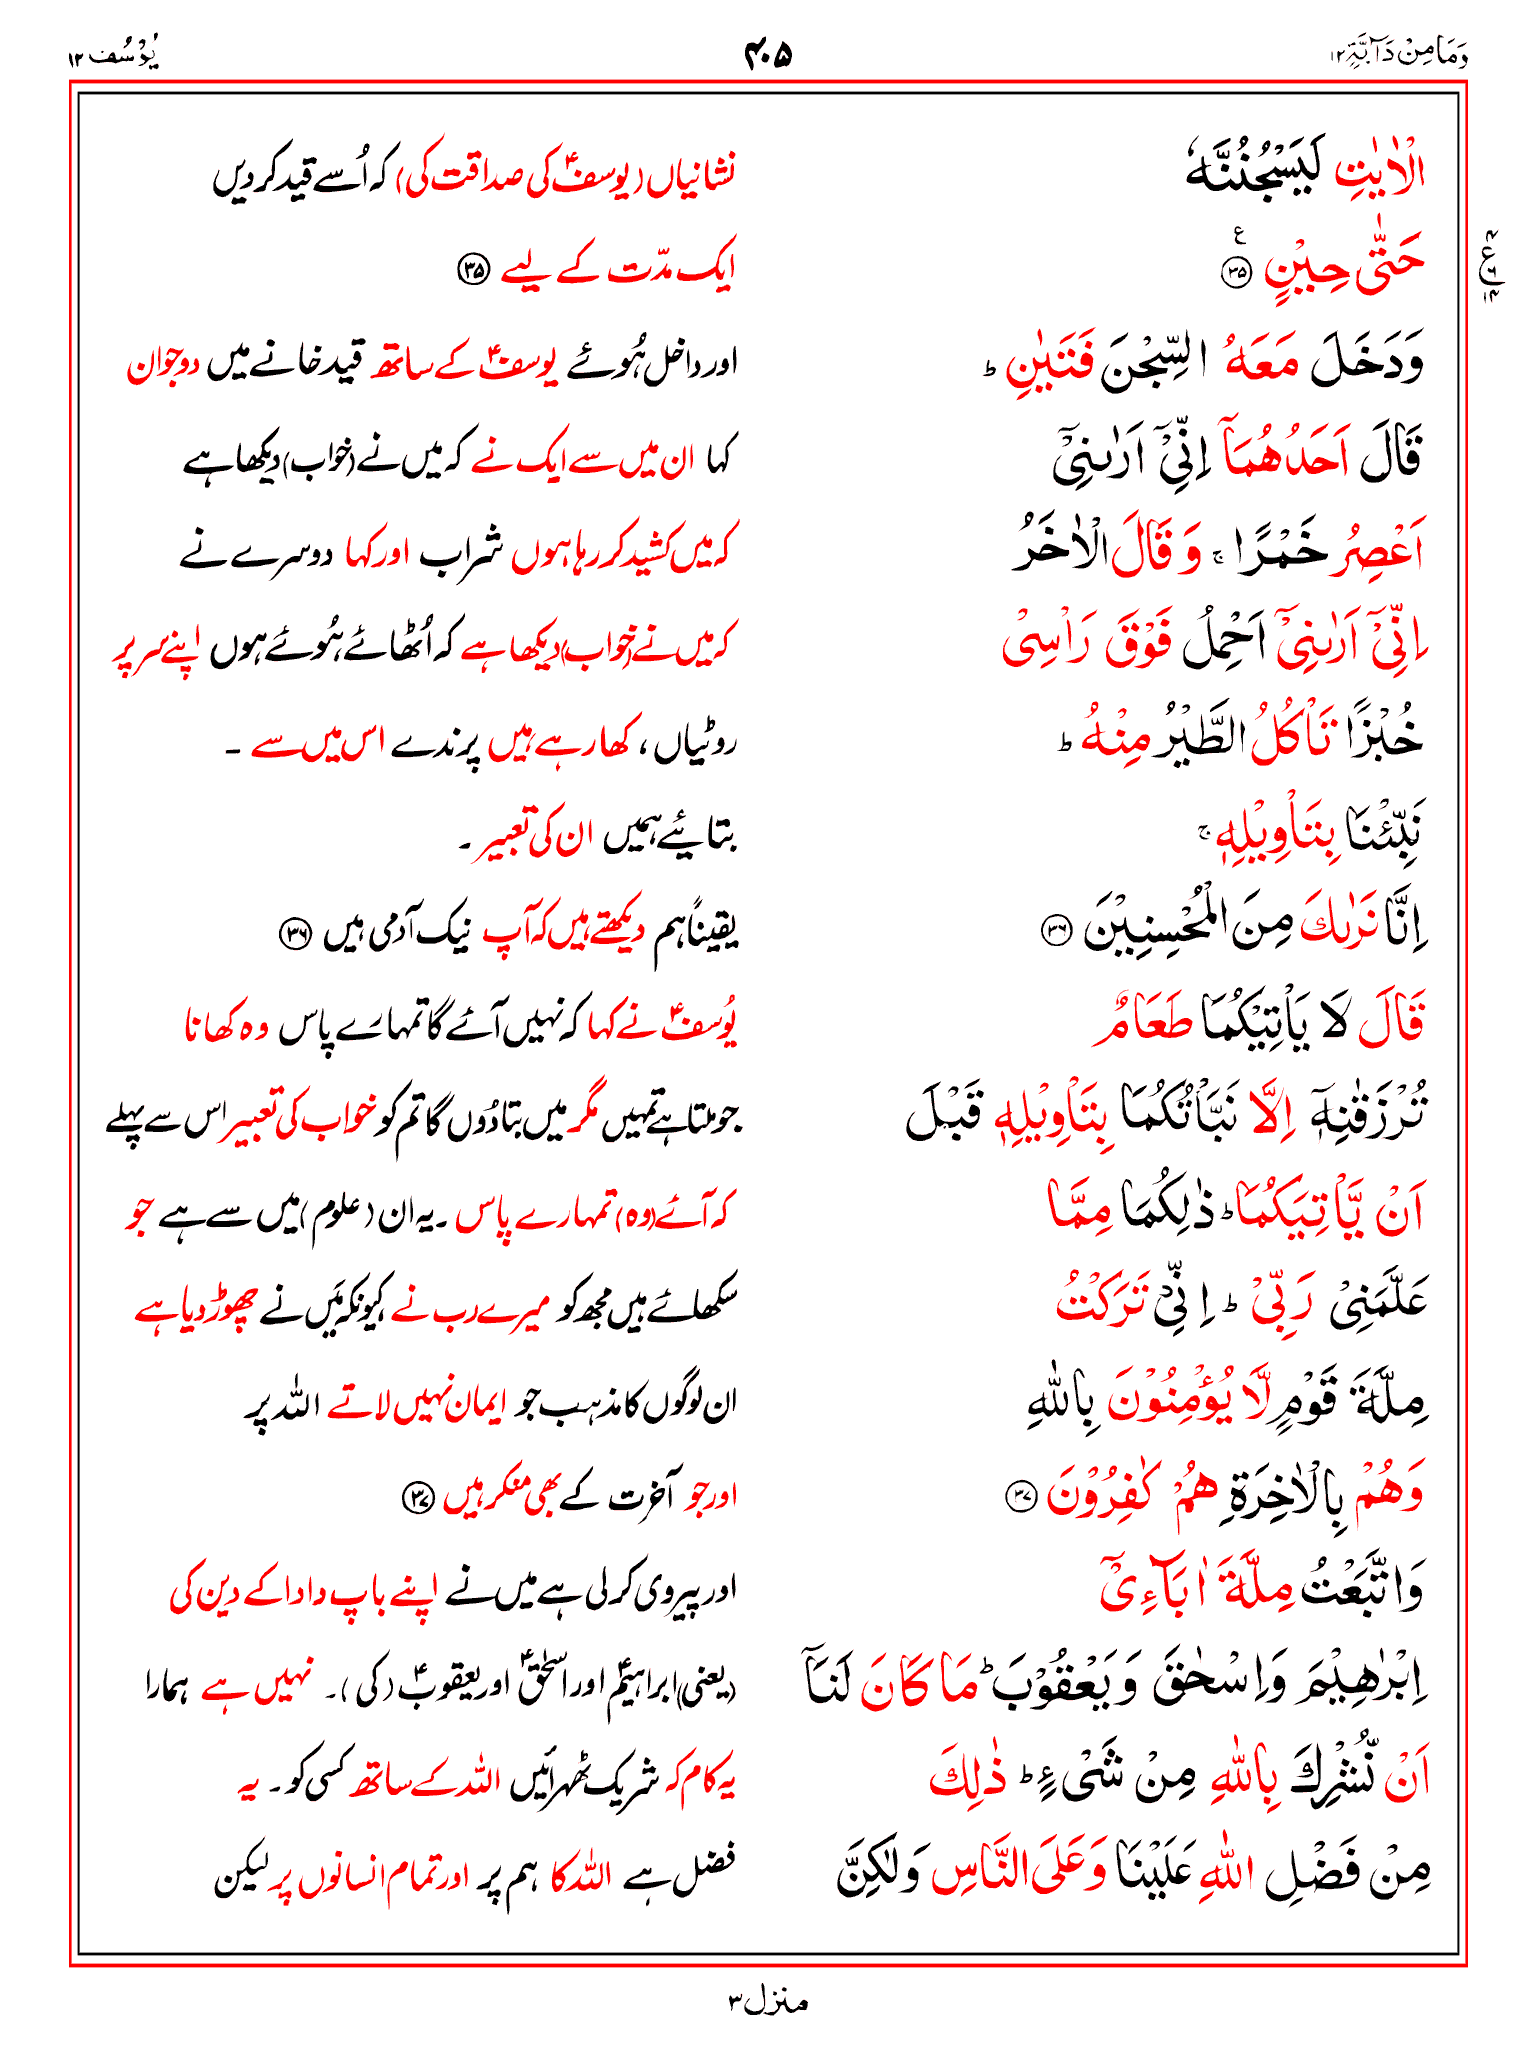 وَمَا مِنْ دَآبَّةٍ ۱۲ ۴۰۵ يُوْسُف ۱۲
الْاٰيٰتِ لَيَسْجُنُنَّهٗ نشانیاں (یوسفؑ کی صداقت کی) کہ اُسے قید کردیں
حَتّٰى حِيْنٍ ۳۵ ع ایک مدّت کے لیے ۳۵
۴ ع ۶ ۱۴
وَدَخَلَ مَعَهُ السِّجْنَ فَتَيٰنِ ؕ اور داخل ہُوئے یوسفؑ کے ساتھ قید خانے میں دو جوان
قَالَ اَحَدُهُمَاۤ اِنِّىْۤ اَرٰىنِىْۤ کہا ان میں سے ایک نے کہ میں نے (خواب) دیکھا ہے
اَعْصِرُ خَمْرًا ۚ وَ قَالَ الْاٰخَرُ کہ میں کشید کر رہا ہوں شراب اور کہا دوسرے نے
اِنِّىْۤ اَرٰىنِىْۤ اَحْمِلُ فَوْقَ رَاْسِىْ کہ میں نے (خواب) دیکھا ہے کہ اُٹھائے ہُوئے ہوں اپنے سر پر
خُبْزًا تَاْكُلُ الطَّيْرُ مِنْهُ ؕ روٹیاں ، کھا رہے ہیں پرندے اس میں سے ۔
نَبِّئْنَا بِتَاْوِيْلِهٖ ۚ بتائیے ہمیں ان کی تعبیر ۔
اِنَّا نَرٰىكَ مِنَ الْمُحْسِنِيْنَ ۳۶ یقیناً ہم دیکھتے ہیں کہ آپ نیک آدمی ہیں ۳۶
قَالَ لَا يَاْتِيْكُمَا طَعَامٌ یُوسفؑ نے کہا کہ نہیں آئے گا تمہارے پاس وہ کھانا
تُرْزَقٰنِهٖۤ اِلَّا نَبَّاْتُكُمَا بِتَاْوِيْلِهٖ قَبْلَ جو ملتا ہے تمہیں مگر میں بتا دُوں گا تم کو خواب کی تعبیر اس سے پہلے
اَنْ يَّاْتِيَكُمَا ؕ ذٰلِكُمَا مِمَّا کہ آئے (وہ) تمہارے پاس ۔ یہ ان (علوم) میں سے ہے جو
عَلَّمَنِىْ رَبِّىْ ؕ اِنِّىْ تَرَكْتُ سکھائے ہیں مجھ کو میرے رب نے کیونکہ مَیں نے چھوڑ دیا ہے
مِلَّةَ قَوْمٍ لَّا يُؤْمِنُوْنَ بِاللّٰهِ ان لوگوں کا مذہب جو ایمان نہیں لاتے اللہ پر
وَهُمْ بِالْاٰخِرَةِ هُمْ كٰفِرُوْنَ ۳۷ اور جو آخرت کے بھی منکر ہیں ۳۷
وَاتَّبَعْتُ مِلَّةَ اٰبَآءِىْۤ اور پیروی کرلی ہے میں نے اپنے باپ دادا کے دین کی
اِبْرٰهِيْمَ وَاِسْحٰقَ وَيَعْقُوْبَ ؕ مَا كَانَ لَنَاۤ (یعنی) ابراہیمؑ اور اسحٰقؑ اور یعقوبؑ (کی) ۔ نہیں ہے ہمارا
اَنْ نُّشْرِكَ بِاللّٰهِ مِنْ شَىْءٍ ؕ ذٰلِكَ یہ کام کہ شریک ٹھہرائیں اللہ کے ساتھ کسی کو ۔ یہ
مِنْ فَضْلِ اللّٰهِ عَلَيْنَا وَعَلَى النَّاسِ وَلٰكِنَّ فضل ہے اللہ کا ہم پر اور تمام انسانوں پر لیکن
منزل ۳